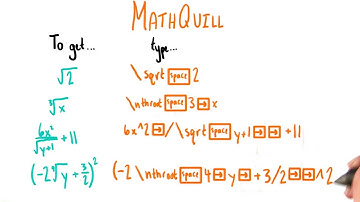 MATHQUILL
To get... type...
√2 \sqrt [space] 2
∛x \nthroot [space] 3 [→] x
6x²/√(y+1) + 11 6x^2 [→] / \sqrt [space] y+1 [→] [→] +11
(-2 ∜y + 3/2)² (-2 \nthroot [space] 4 [→] y [→] + 3/2 [→] [→] ^2